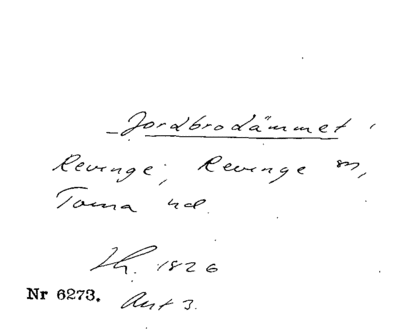 Jordbrodämmet i
Revinge; Revinge sn,
Torna hd.
Th. 1826
Nr 6273. Ant 3.